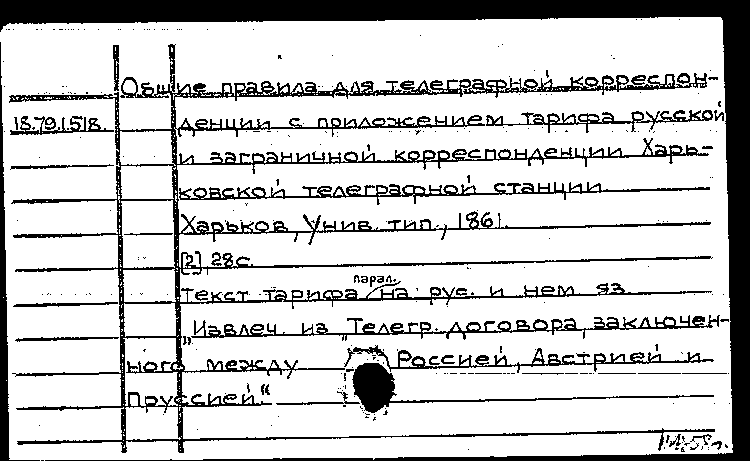 Общие правила для телеграфной корреспон-
18.79.1.518. денции с приложением тарифа русской
и заграничной корреспонденции Харь-
ковской телеграфной станции.
Харьков, Унив. тип., 1861.
[2], 28 с.
Текст тарифа парал. на рус. и нем яз.
„Извлеч. из „Телегр. договора, заключен-
ного между Россией, Австрией и
Пруссией."